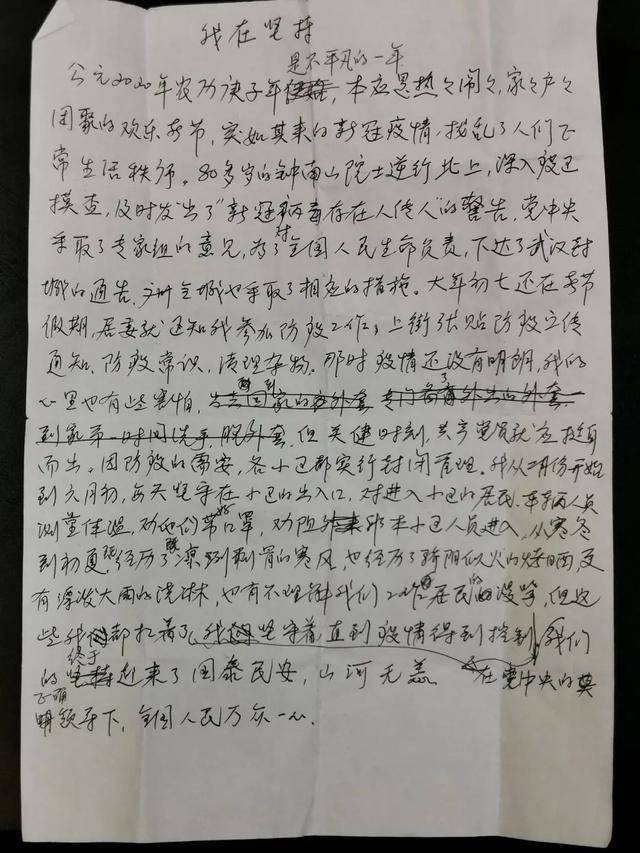 我在坚持
是不平凡的一年
公元2020年农历庚子年，本应是热々闹々，家々户々
团聚的欢乐春节，突如其来的新冠疫情，扰乱了人们正
常生活秩序。80多岁的钟南山院士逆行北上，深入疫区
摸查，及时发出了"新冠病毒存在人传人"的警告，党中央
采取了专家组的意见，为了对全国人民生命负责，下达了武汉封
城的通告，全城也采取了相应的措施。大年初七还在春节
假期，居委就通知我参加防疫工作，上街张贴防疫宣传
通知、防疫常识，清理杂物。那时疫情还没有明朗，我的
心里也有些害怕，
到家第一时间洗手脱外套，但关健时刻，共产党员就应挺身
而出。因防疫的需要，各小区都实行封闭管理。我从2月份开始
到六月初，每天坚守在小区的出入口，对进入小区的居民、车辆人员
测量体温，劝他们带好口罩，劝阻非本小区人员进入，从寒冬
到初夏经历了凛冽刺骨的寒风，也经历了骄阳似火的烤晒，更
有滂泼大雨的洗淋，也有不理解我们工作的居民的谩骂，但这
些我们都扛着了，我们坚守着直到疫情得到控制，我们
的坚持终于迎来了国泰民安，山河无恙 在党中央的英
明领导下，全国人民万众一心.